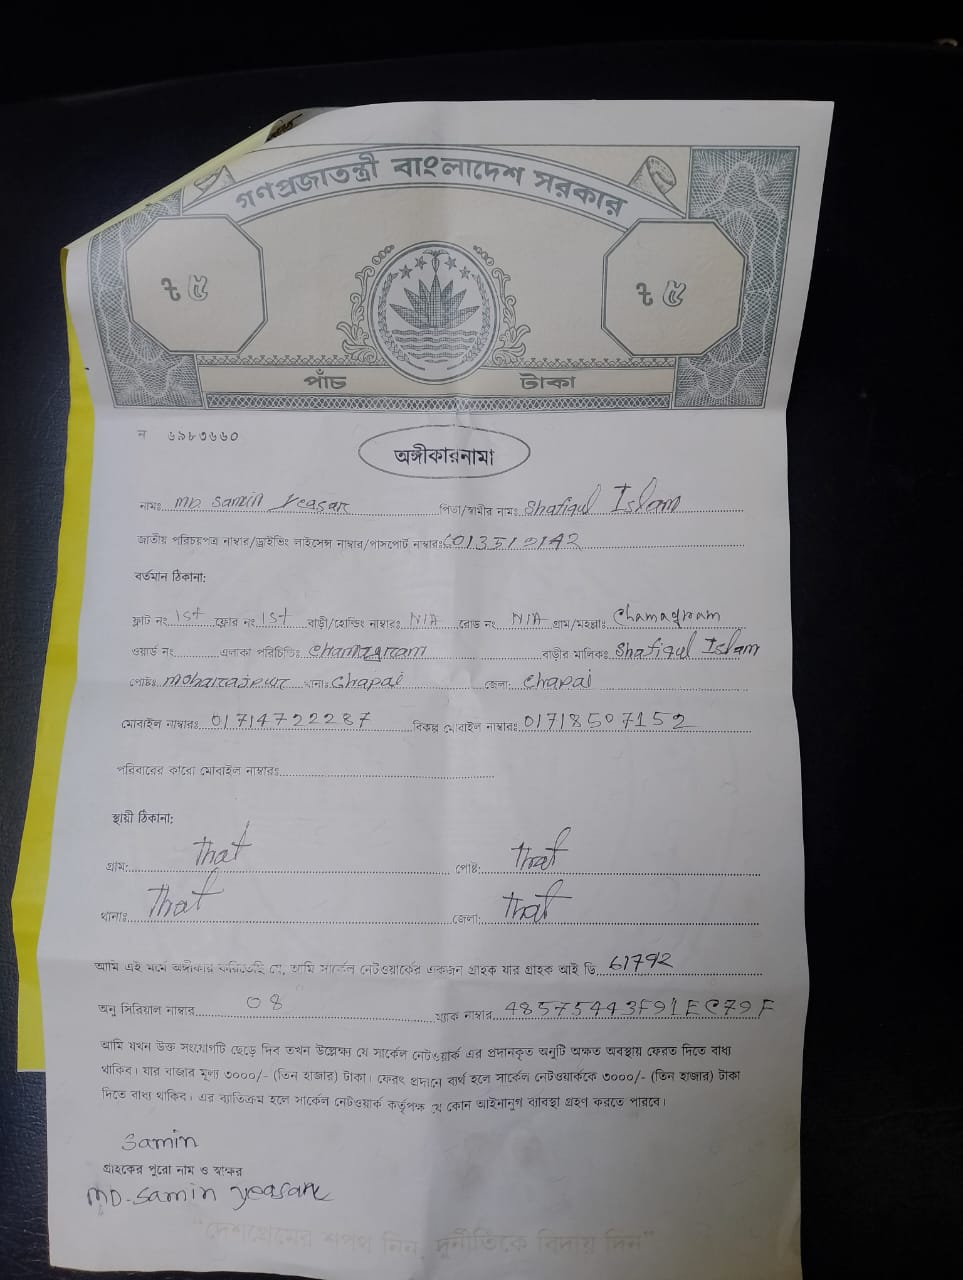 গণপ্রজাতন্ত্রী বাংলাদেশ সরকার
৳ ৫ ৳ ৫
পাঁচ টাকা
ন ৬৯৮৩৬৬০
অঙ্গীকারনামা
নামঃ MD Samin Yeasar পিতা/স্বামীর নামঃ Shafiqul Islam
জাতীয় পরিচয়পত্র নাম্বার/ড্রাইভিং লাইসেন্স নাম্বার/পাসপোর্ট নাম্বারঃ
বর্তমান ঠিকানা:
ফ্লাট নং 1st ফ্লোর নং 1st বাড়ী/হোল্ডিং নাম্বারঃ N/A রোড নং N/A গ্রাম/মহল্লাঃ Chamagram
ওয়ার্ড নং এলাকা পরিচিতিঃ Chamagram বাড়ীর মালিকঃ Shafiqul Islam
পোষ্টঃ থানাঃ Chapai জেলা: Chapai
মোবাইল নাম্বারঃ 01714722287 বিকল্প মোবাইল নাম্বারঃ 01718507152
পরিবারের কারো মোবাইল নাম্বারঃ
স্থায়ী ঠিকানা:
গ্রাম: That পোষ্ট: That
থানাঃ That জেলা: That
আমি এই মর্মে অঙ্গীকার করিতেছি যে, আমি সার্কেল নেটওয়ার্কের একজন গ্রাহক যার গ্রাহক আই ডি 61792
অনু সিরিয়াল নাম্বার 08 ম্যাক নাম্বার 48575443F91EC79F
আমি যখন উক্ত সংযোগটি ছেড়ে দিব তখন উল্লেক্ষ্য যে সার্কেল নেটওয়ার্ক এর প্রদানকৃত অনুটি অক্ষত অবস্থায় ফেরত দিতে বাধ্য
থাকিব। যার বাজার মূল্য ৩০০০/- (তিন হাজার) টাকা। ফেরৎ প্রদানে ব্যর্থ হলে সার্কেল নেটওয়ার্ককে ৩০০০/- (তিন হাজার) টাকা
দিতে বাধ্য থাকিব। এর ব্যতিক্রম হলে সার্কেল নেটওয়ার্ক কর্তৃপক্ষ যে কোন আইনানুগ ব্যাবস্থা গ্রহণ করতে পারবে।
Samin
গ্রাহকের পুরো নাম ও স্বাক্ষর
MD. Samin Yeasar
"দেশপ্রেমের শপথ নিন, দুর্নীতিকে বিদায় দিন"